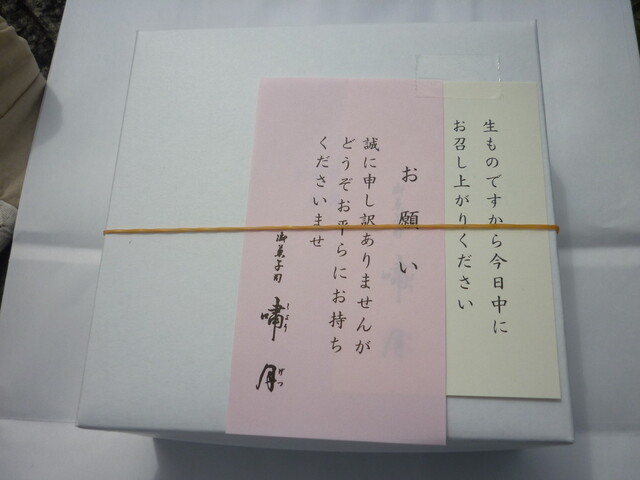 生ものですから今日中に
お召し上がりください
お願い
誠に申し訳ありませんが
どうぞお平らにお持ち
くださいませ
御菓子司
嘯月
しょうげつ